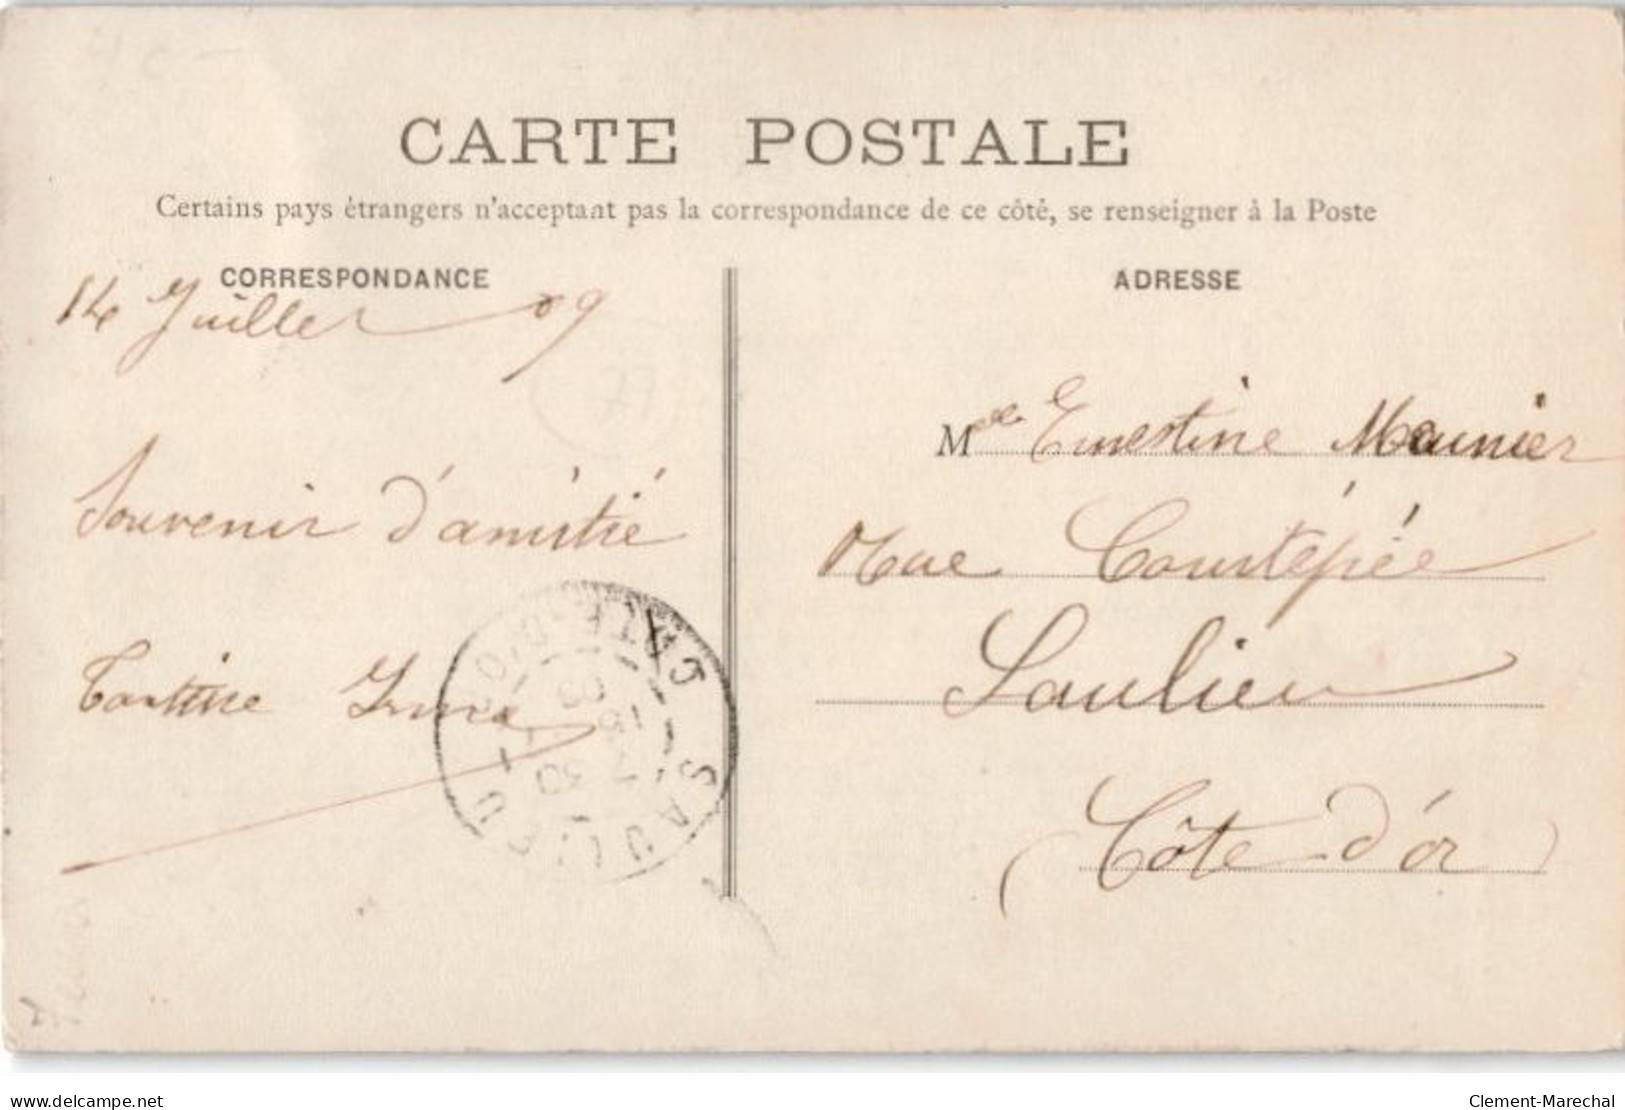 CARTE POSTALE
Certains pays étrangers n'acceptant pas la correspondance de ce côté, se renseigner à la Poste
CORRESPONDANCE
14 Juillet 09
77
Souvenir d'amitié
ADRESSE
Melle Ernestine Meunier
Rue Courtépée
Saulieu
(Côte d'or)
SAULIEU
COTE-D'OR
15 - 7
09
delcampe.net
Clement-Marechal